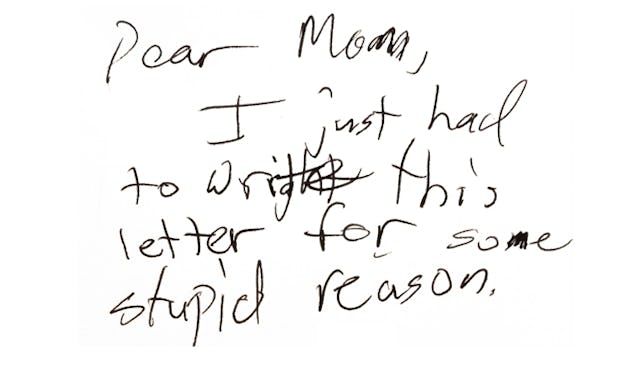 Dear Mom,
I just had
to write this
letter for some
stupid reason.